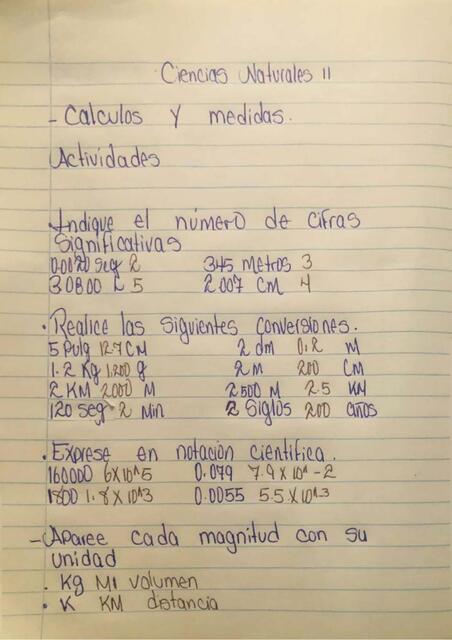 Ciencias Naturales II
- Calculos y medidas.
Actividades
Indique el número de cifras
Significativas
0.0020 seg 2 345 Metros 3
30800 L 5 2.007 CM 4
• Realice las siguientes conversiones.
5 Pulg 12.7 CM 2 dm 0.2 M
1.2 Kg 1.200 g 2 M 200 CM
2 KM 2000 M 2500 M 2.5 KM
120 seg 2 Min 2 Siglos 200 años
• Exprese en notación cientifica.
160000 6X10^5 0.079 7.9X10^-2
1800 1.8X10^3 0.0055 5.5X10^-3
- Aparee cada magnitud con su
unidad
• Kg Ml volumen
• K KM distancia